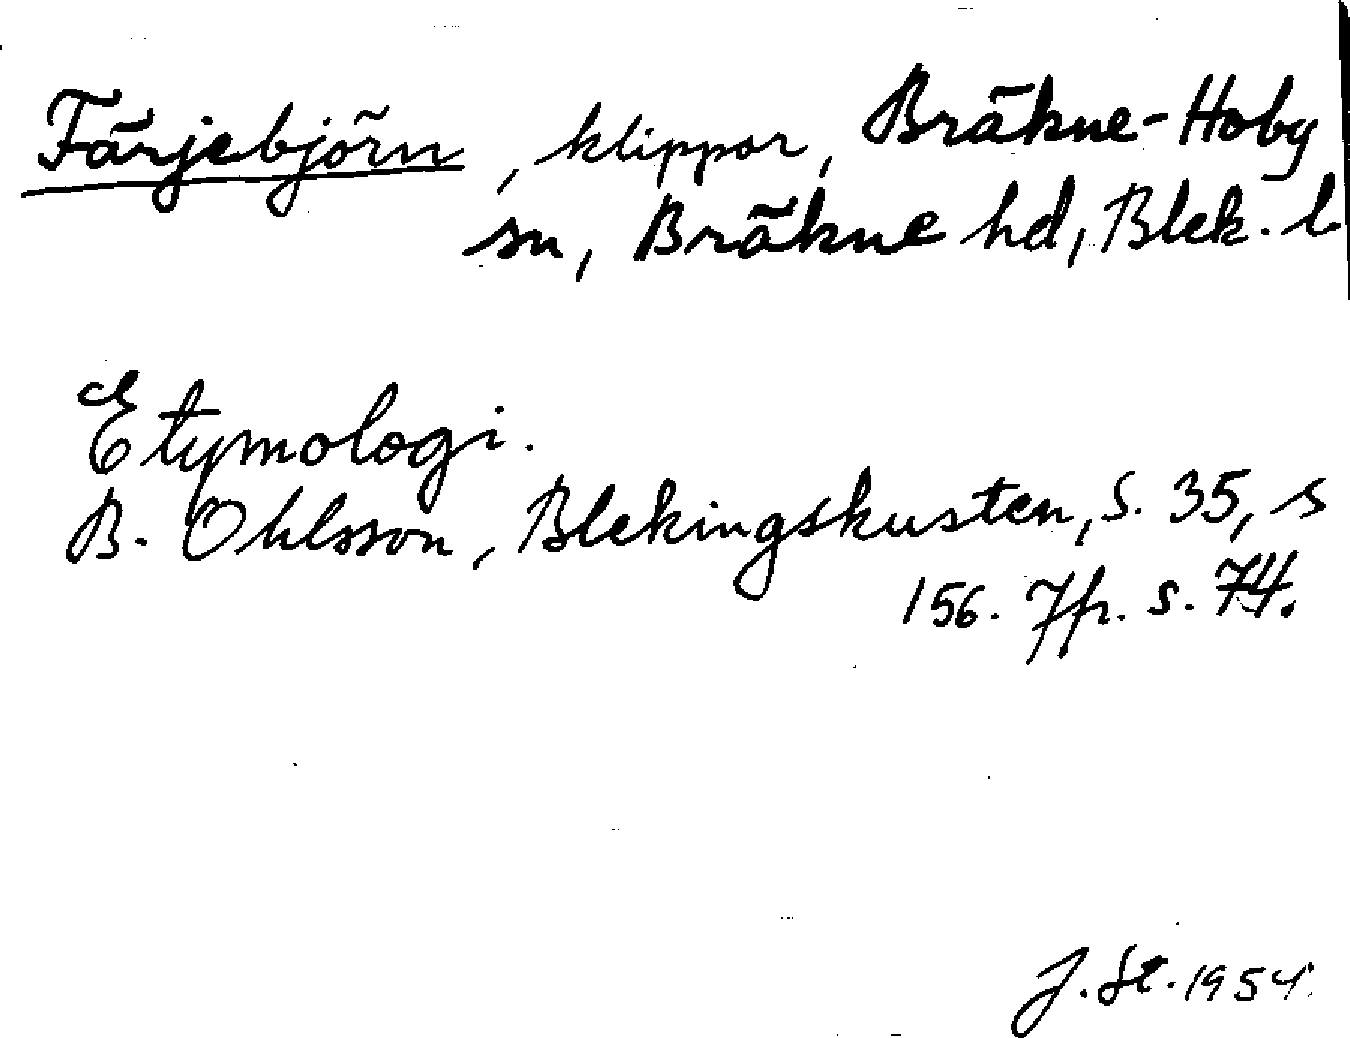 Färjebjörn, klippor, Bräkne-Hoby
sn, Bräkne hd, Blek. l.
Etymologi.
B. Ohlsson, Blekingskusten, S. 35, s
156. Jfr. s. 74.
J. St. 1954.